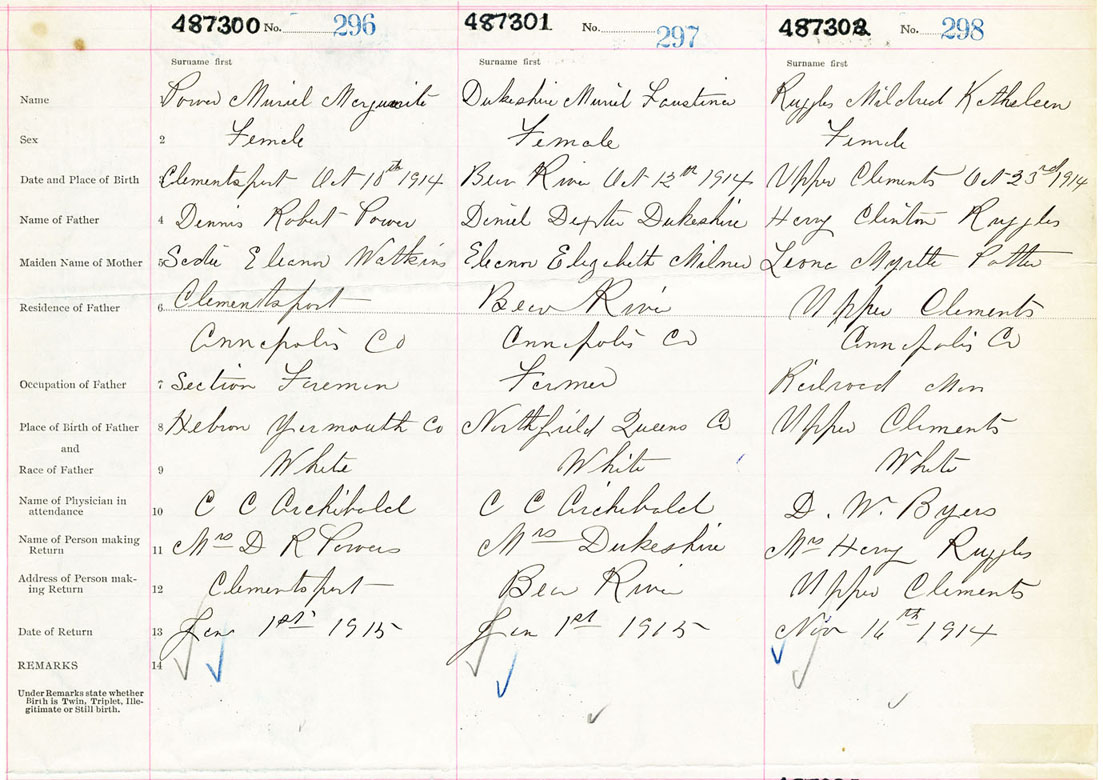 487300 No. 296 487301 No. 297 487302 No. 298
Surname first Surname first Surname first
Name Power Muriel Merguerite Dukeshire Muriel Faustina Ruggles Mildred Katheleen
Sex 2 Female Female Female
Date and Place of Birth 3 Clementsport Oct 10th 1914 Bear River Oct 12th 1914 Upper Clements Oct 23rd 1914
Name of Father 4 Dennis Robert Power Daniel Dexter Dukeshire Harry Clinton Ruggles
Maiden Name of Mother 5 Sadie Eleanor Watkins Eleanor Elizabeth Milner Leona Myrtle Potter
Residence of Father 6 Clementsport Bear River Upper Clements
Annapolis Co Annapolis Co Annapolis Co
Occupation of Father 7 Section Foreman Farmer Railroad Man
Place of Birth of Father 8 Hebron Yarmouth Co Northfield Queens Co Upper Clements
and
Race of Father 9 White White White
Name of Physician in
attendance 10 C C Archibald C C Archibald D. W. Byers
Name of Person making
Return 11 Mrs D R Powers Mrs Dukeshire Mrs Harry Ruggles
Address of Person mak-
ing Return 12 Clementsport Bear River Upper Clements
Date of Return 13 Jan 1st 1915 Jan 1st 1915 Nov 16th 1914
REMARKS 14
Under Remarks state whether
Birth is Twin, Triplet, Ille-
gitimate or Still birth.